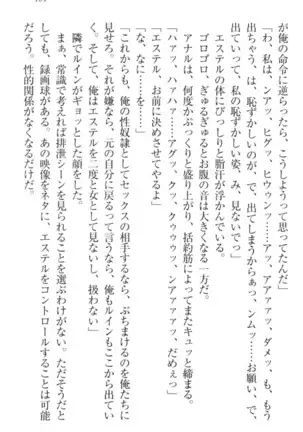 が俺の命令に逆らったら、こうしようって思ってたんだ」
「わ、私は、ンアッ、ヒグッ、ヒウウンッ……アッ、アアアァッ、ダメッ、も、もう
出ちゃう、は、恥ずかしいのが、で、出てしまうからぁっ、ンムッ……お願い、で、
出ていって、私の恥ずかしい姿、み、見ないでっ」
エステルの体にびっしりと脂汗が浮かんでいる。
ゴロゴロ、ぎゅるぎゅるとお腹の音は大きくなる一方だ。
アナルは、何度かぷっくりと盛り上がり、括約筋によってまたキュッと締まる。
「ハァッ、ハァハァ……アグッ、クッ、クゥゥゥッ、ンアァァァッ、だめぇっ」
「エステル、お前に決めさせてやるよ」
「な、なに……を……」
「これからも、俺の性奴隷としてセックスの相手するなら、ぶちまけるのを俺たちに
見せろ。それが嫌なら、元の自分に戻るって言うなら、俺もルインもここから出てい
く。そして、俺はエステルを二度と女として見ないし、扱わない」
隣でルインがギョッとした顔をした。
まぁ、常識で考えれば排泄シーンを見られることを選ぶわけがない。ただそうだと
しても、録画球がある。あの映像をネタに、エステルをコントロールすることは可能
だろう。性的関係がなくなるだけだ。